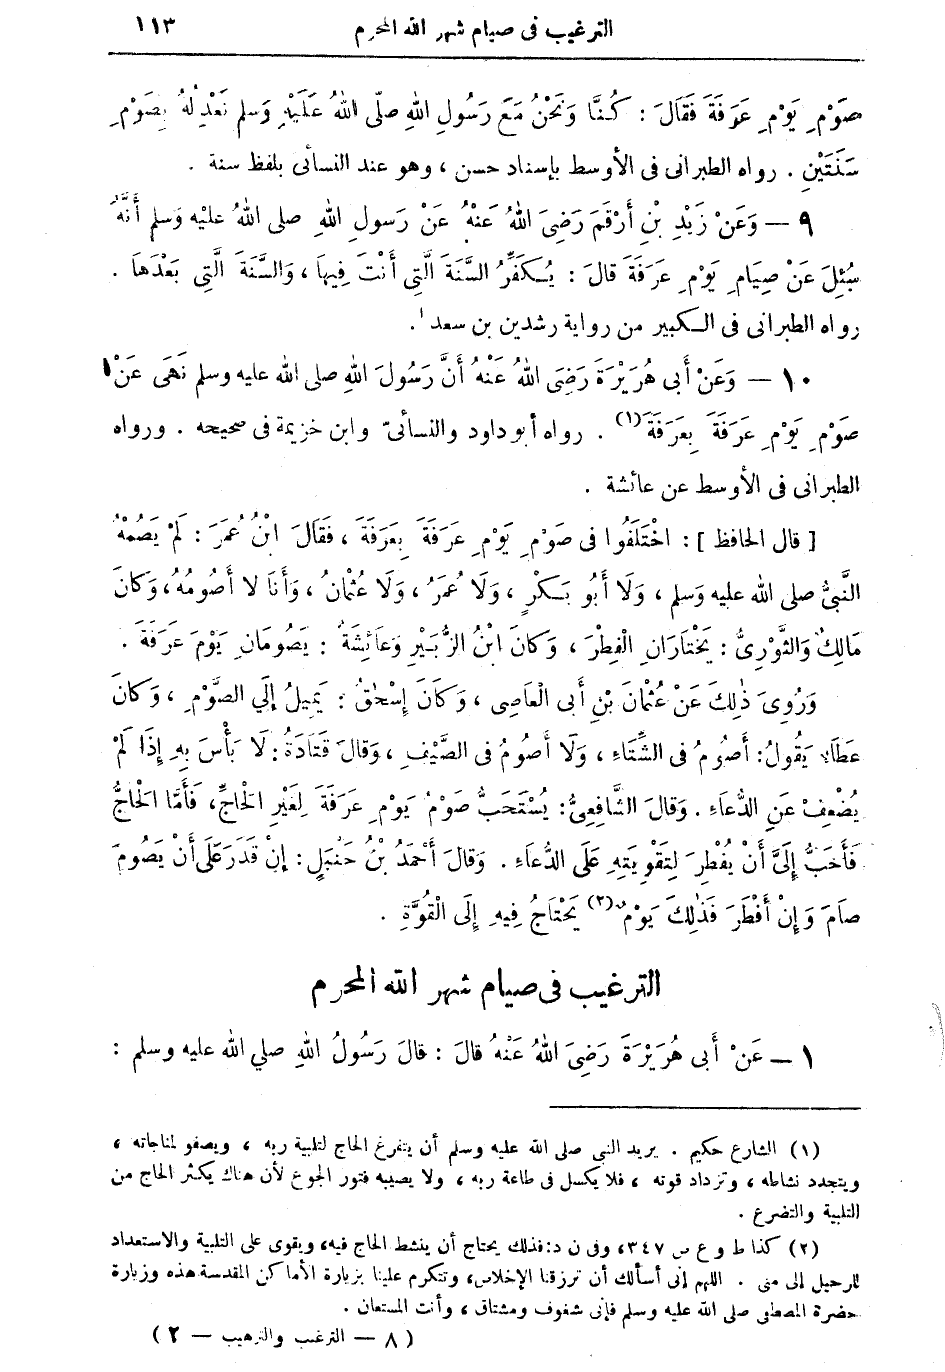 الترغيب فى صيام شهر الله المحرم ١١٣
صَوْمِ يَوْمِ عَرَفَةَ فَقَالَ : كُنَّا وَنَحْنُ مَعَ رَسُولِ اللهِ صلَّى اللهُ عَلَيْهِ وَسلم نَعْدِلُهُ بِصَوْمِ
سَنَتَيْنِ . رواه الطبرانى فى الأوسط بإسناد حسن ، وهو عند النسائى بلفظ سنة .
٩ — وَعَنْ زَيْدِ بْنِ أَرْقَمَ رَضِىَ اللهُ عَنْهُ عَنْ رَسولِ اللهِ صلى اللهُ عليْه وَسلم أَنَّهُ
سُئِلَ عَنْ صِيَامِ يَوْمِ عَرَفَةَ قالَ : يُكَفِّرُ السَّنَةَ الَّتِى أَنْتَ فِيهَا ، وَالسَّنَةَ الَّتِى بَعْدَهَا .
رواه الطبرانى فى الكبير من رواية رشدين بن سعد .
١٠ — وَعَنْ أَبى هُرَيْرَةَ رَضِىَ اللهُ عَنْهُ أَنَّ رَسُولَ اللهِ صلى الله عليه وسلم نَهَى عَنْ
صَوْمِ يَوْمِ عَرَفَةَ بِعَرَفَةَ (١) . رواه أبو داود والنسائىّ وابن خزيمة فى صحيحه . ورواه
الطبرانى فى الأوسط عن عائشة .
[ قال الحافظ ] : اخْتَلَفُوا فى صَوْمِ يَوْمِ عَرَفَةَ بِعَرَفَةَ ، فَقَالَ ابْنُ عُمَرَ : لَمْ يَصُمْهُ
النَّبىُّ صلى الله عليه وَسلم ، وَلَا أَبُو بَكْرٍ ، وَلَا عُمَرُ ، وَلَا عُثْمانُ ، وَأَنَا لا أَصُومُهُ، وَكانَ
مَالِكٌ وَالثَّوْرِىُّ : يَخْتَارَانِ الْفِطْرَ ، وَكانَ ابْنُ الزُّبَيْرِ وَعَائِشَةُ : يَصُومَانِ يَوْمَ عَرَفَةَ .
وَرُوِىَ ذٰلِكَ عَنْ عُثْمَانَ بْنِ أَبى الْعَاصِى ، وَكَانَ إِسْحٰقُ : يَمِيلُ إِلَي الصَّوْمِ ، وَكانَ
عَطَاءٌ يَقُولُ: أَصُومُ فى الشِّتَاءِ ، وَلَا أَصُومُ فى الصَّيْفِ ، وَقالَ قَتَادَةُ: لَا بَأْسَ بِهِ إِذَا لَمْ
يُضْعِفْ عَنِ الدُّعَاءِ . وَقالَ الشَّافِعِىُّ: يُسْتَحَبُّ صَوْمُ يَوْمِ عَرَفَةَ لِغَيْرِ الْحَاجِّ، فَأَمَّا الْحَاجُّ
فَأَحَبُّ إِلَىَّ أَنْ يُفْطِرَ لِتَقْوِيَتِهِ عَلَى الدُّعَاءِ . وَقالَ أَحْمَدُ بْنُ حَنْبَلٍ: إِنْ قَدَرَ عَلَى أَنْ يَصُومَ
صَامَ وَإِنْ أَفْطَرَ فَذٰلِكَ يَوْمٌ (٢) يَحْتَاجُ فِيهِ إِلَى الْقُوَّةِ .
الترغيب فى صيام شهر الله المحرم
١ — عَنْ أَبى هُرَيْرَةَ رَضِىَ اللهُ عَنْهُ قالَ : قالَ رَسُولُ اللهِ صلي الله عليه وسلم :
(١) الشارع حكيم . يريد النبى صلى الله عليه وسلم أن يتفرغ الحاج لتلبية ربه ، ويصفو لمناجاته ،
ويتجدد نشاطه ، وتزداد قوته ، فلا يكسل فى طاعة ربه ، ولا يصيبه فتور الجوع لأن هناك يكثر الحاج من
التلبية والتضرع .
(٢) كذا ط و ع ص ٣٤٧، وفى ن د: فذلك يحتاج أن ينشط الحاج فيه، ويقوى على التلبية والاستعداد
للرحيل إلى منى . اللهم إنى أسألك أن ترزقنا الإخلاص، وتتكرم علينا بزيارة الأماكن المقدسة هذه وزيارة
حضرة المصطفى صلى الله عليه وسلم فإنى شغوف ومشتاق ، وأنت المستعان .
( ٨ — الترغيب والترهيب — ٢ )